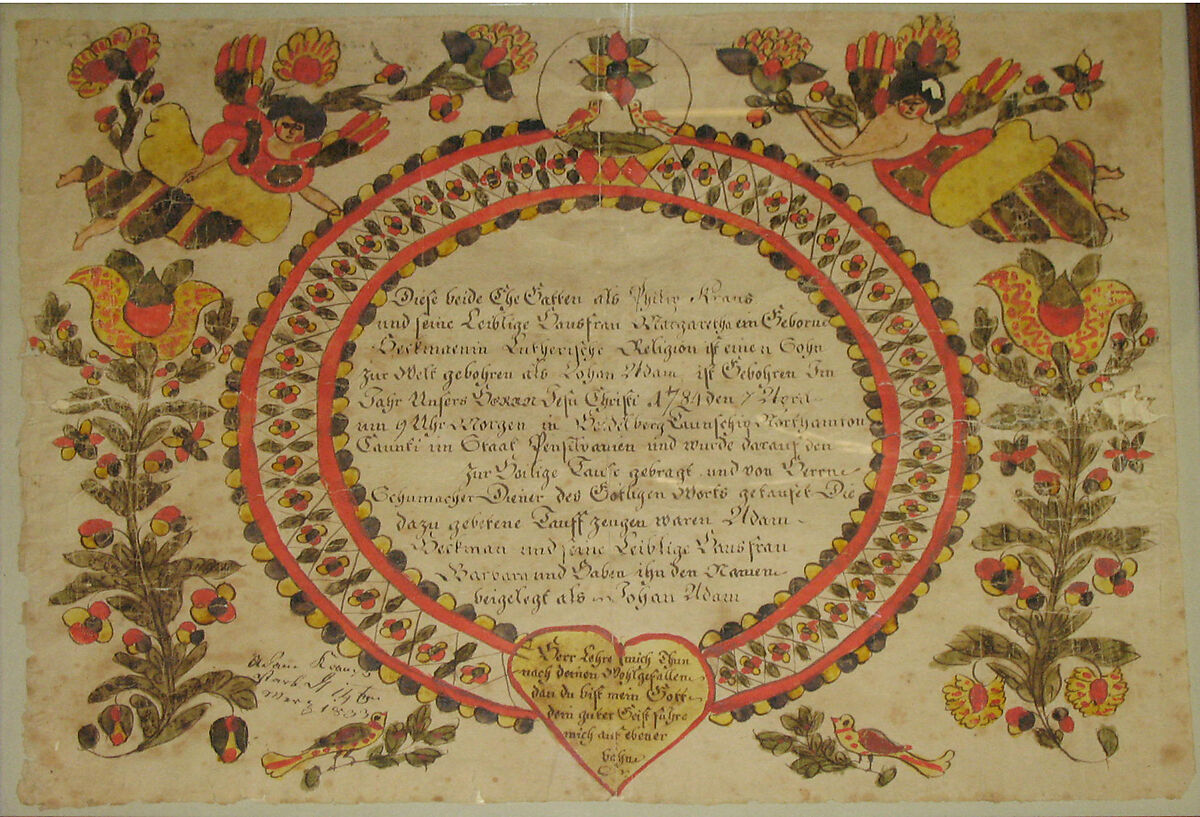 Diese beide Ehe Gatten als Philip Kraus
und seine Leiblige Hausfrau Margaretha ein Geborne
Beckmaenin Lutherische Religion ist einen Sohn
zur Welt gebohren als Johan Adam ist Gebohren Im
Jahr Unsers Heren Jesu Christi 1784 den 7
um 9 Uhr Morgen in Heidelberg Taunschip Northamton
Caunti im Staat Pensilvanien und wurde darauf den
zur Heilige Taufe gebragt und von Herrn
Schumacher Diener des Götligen Worts getaufet Die
dazu gebetene Tauff zeugen waren Adam
Beckman und seine Leiblige Hausfrau
Barbara und Haben ihn den Namen
beigelegt als Johan Adam
Herr Lehre mich Thun
nach deinen Wohlgefallen
dan du bist mein Gott
dein guter Geist führe
mich auf ebener
bahn
Adam Kraus
starb 14
1833